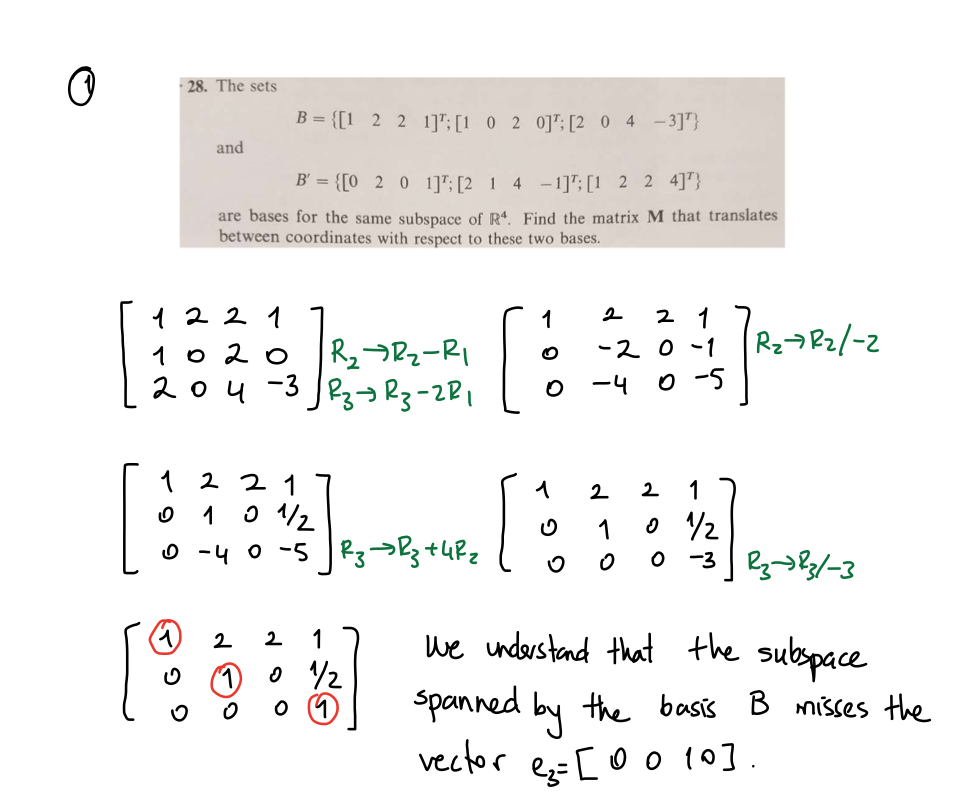 ①
28. The sets
B = {[1 2 2 1]ᵀ; [1 0 2 0]ᵀ; [2 0 4 −3]ᵀ}
and
B′ = {[0 2 0 1]ᵀ; [2 1 4 −1]ᵀ; [1 2 2 4]ᵀ}
are bases for the same subspace of ℝ⁴. Find the matrix M that translates
between coordinates with respect to these two bases.
[ 1 2 2 1
1 0 2 0
2 0 4 -3 ] R₂→R₂-R₁
R₃→R₃-2R₁
[ 1 2 2 1
0 -2 0 -1
0 -4 0 -5 ] R₂→R₂/-2
[ 1 2 2 1
0 1 0 1/2
0 -4 0 -5 ] R₃→R₃+4R₂
[ 1 2 2 1
0 1 0 1/2
0 0 0 -3 ] R₃→R₃/-3
[ 1 2 2 1
0 1 0 1/2
0 0 0 1 ]
We understand that the subspace
spanned by the basis B misses the
vector e₃=[ 0 0 1 0 ].